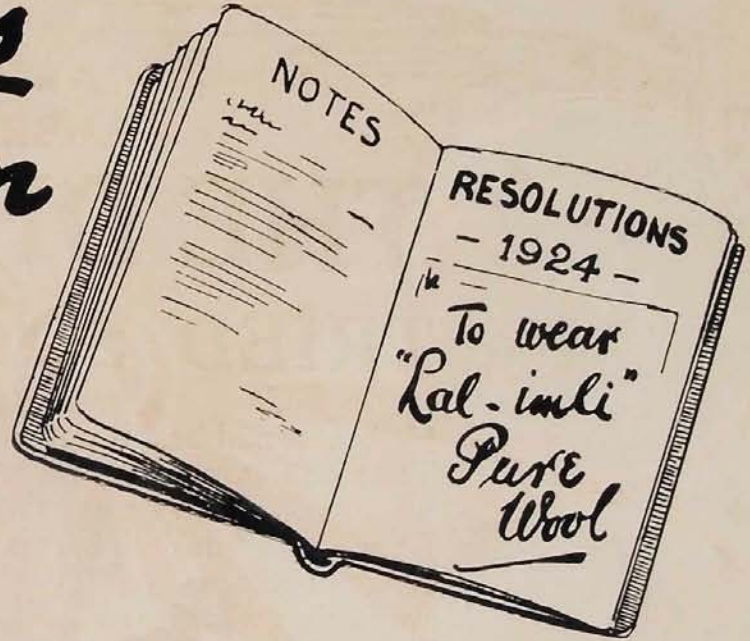 NOTES
RESOLUTIONS
- 1924 -
To wear
"Lal-imli"
Pure
Wool